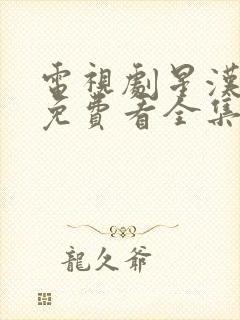 電視劇星漢
免費看全集
龍久爺